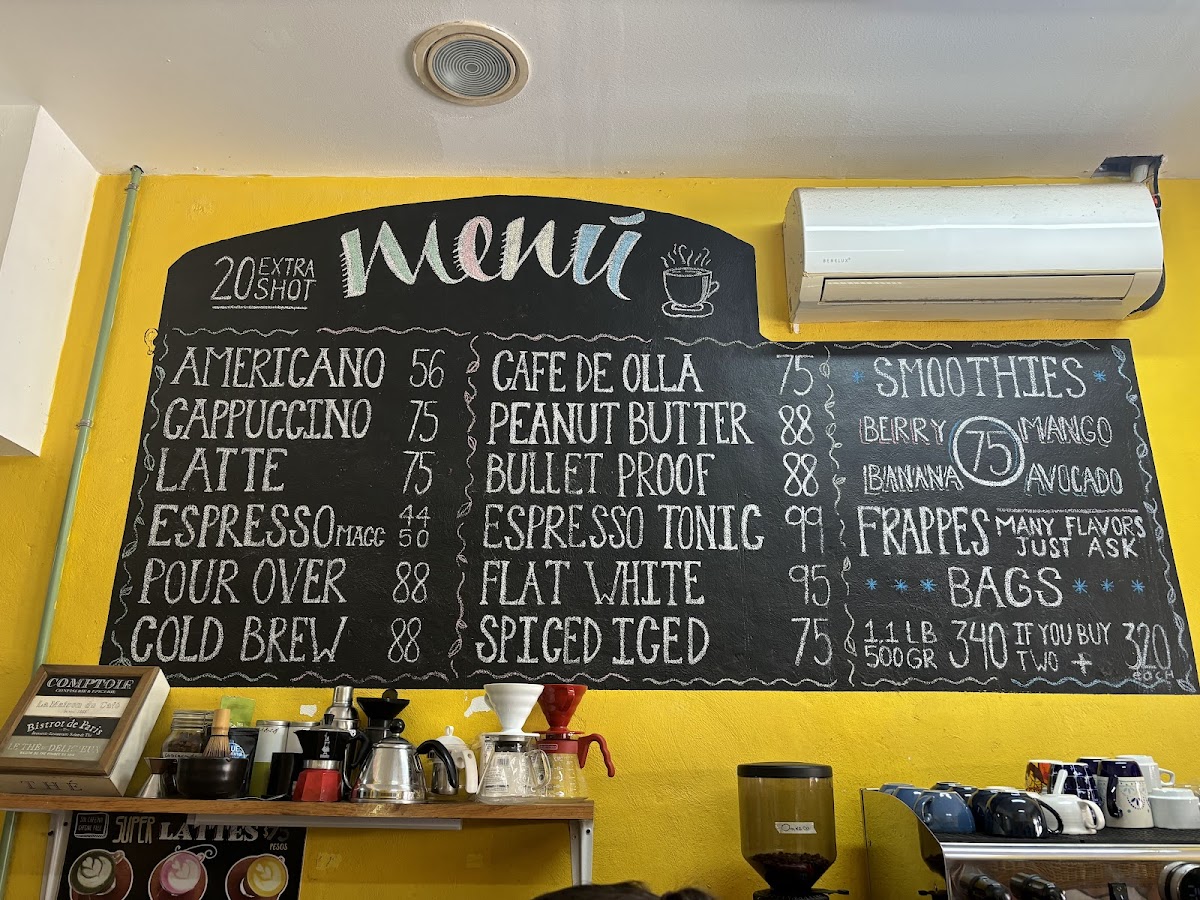 menú
20 EXTRA SHOT
AMERICANO 56
CAPPUCCINO 75
LATTE 75
ESPRESSO 44
MACC 50
POUR OVER 88
COLD BREW 88
CAFE DE OLLA 75
PEANUT BUTTER 88
BULLET PROOF 88
ESPRESSO TONIC 99
FLAT WHITE 95
SPICED ICED 75
SMOOTHIES
BERRY 75 MANGO
BANANA AVOCADO
FRAPPES MANY FLAVORS
JUST ASK
BAGS
1.1 LB
500GR 340 IF YOU BUY
TWO + 320
each
COMPTOIR
La Maison du Café
Bistrot de Paris
LE THÉ DÉLICIEUX
THÉ
SUPER LATTES 75
PESOS
Oaxaca